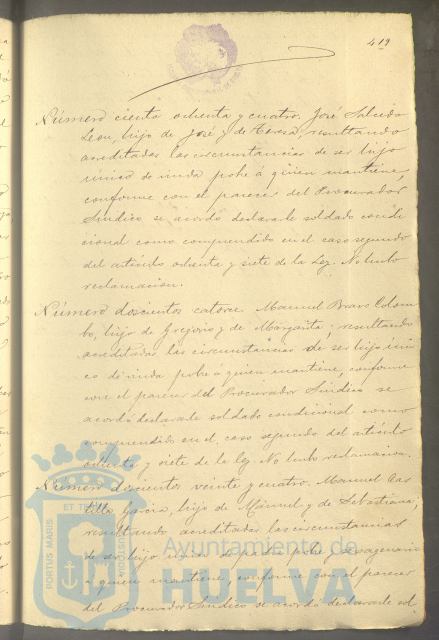 419
Número ciento ochenta y cuatro. José Salcedo
Leon, hijo de José y de Teresa, resultando
acreditadas las circunstancias de ser hijo
único de viuda pobre á quien mantiene,
conforme con el parecer del Procurador
Síndico se acordó declararle soldado condi
cional como comprendido en el caso segundo
del artículo ochenta y siete de la Ley. No hubo
reclamacion.
Número doscientos catorce. Manuel Bravo Colom
bo, hijo de Gregorio y de Margarita; resultando
acreditadas las circunstancias de ser hijo úni
co de viuda pobre á quien mantiene, conforme
con el parecer del Procurador Síndico se
acordó declararle soldado condicional como
comprendido en el caso segundo del artículo
ochenta y siete de la ley. No hubo reclamacion.
Número doscientos veinte y cuatro. Manuel Cas
tillo García, hijo de Manuel y de Sebastiana,
resultando acreditadas las circunstancias
de ser hijo único de padre pobre y sexagenario
á quien mantiene, conforme con el parecer
del Procurador Síndico se acordó declararle sol
Ayuntamiento de
HUELVA
PORTUS MARIS
ET TERRÆ
CUSTODIA